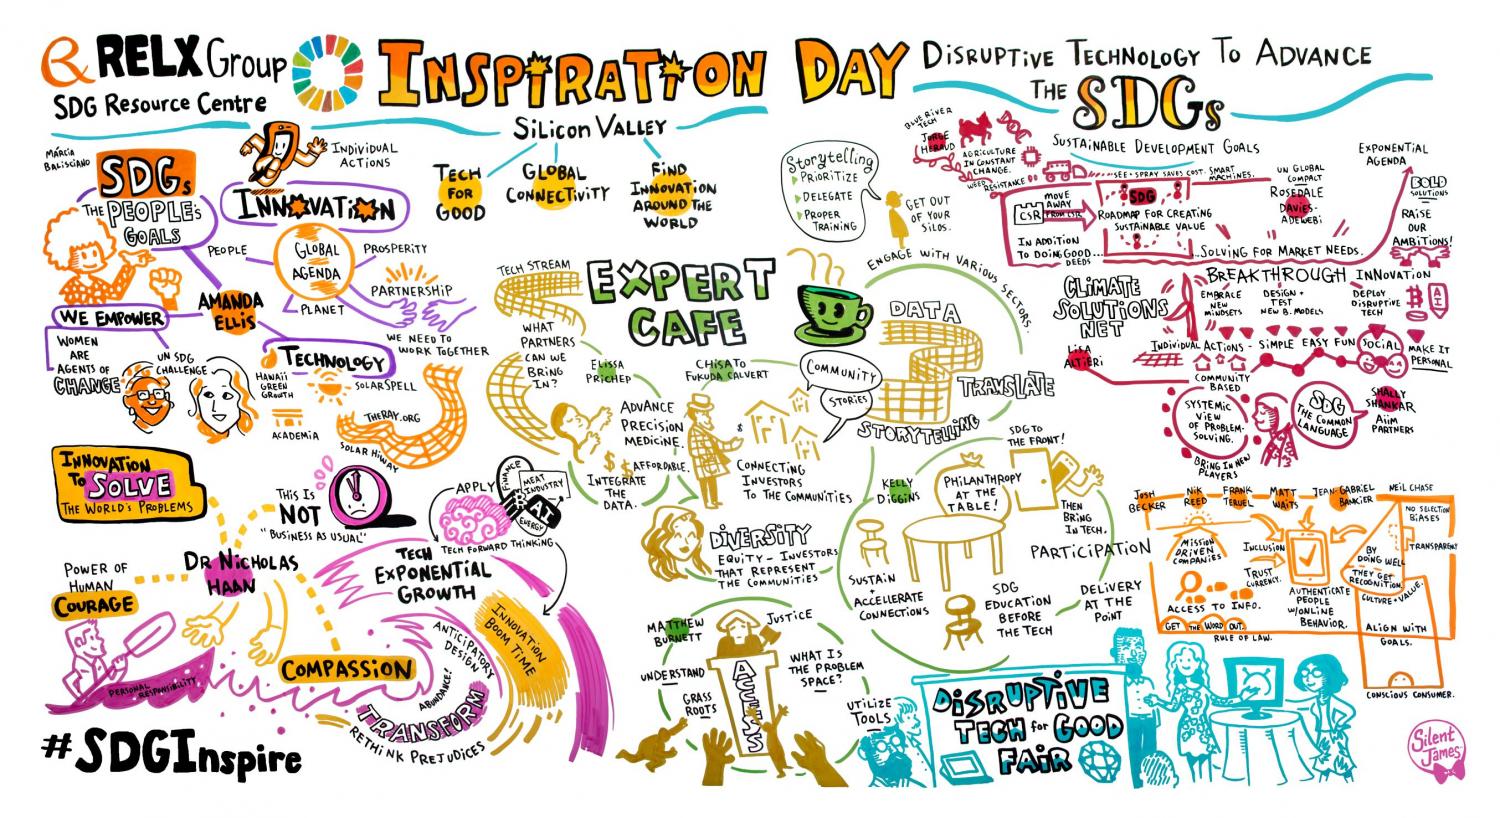 RELX Group
SDG Resource Centre
INSPIRATION DAY
DISRUPTIVE TECHNOLOGY TO ADVANCE
THE SDGs
SILICON VALLEY
TECH
FOR
GOOD
GLOBAL
CONNECTIVITY
FIND
INNOVATION
AROUND THE
WORLD
MÁRCIA
BALISCIANO
SDGs
THE PEOPLE'S
GOALS
INDIVIDUAL
ACTIONS
INNOVATION
PEOPLE
GLOBAL
AGENDA
PROSPERITY
PLANET
PARTNERSHIP
WE NEED TO
WORK TOGETHER
AMANDA
ELLIS
WE EMPOWER
WOMEN
ARE
AGENTS OF
CHANGE
UN SDG
CHALLENGE
TECHNOLOGY
HAWAII
GREEN
GROWTH
SOLARSPELL
ACADEMIA
THERAY.ORG
SOLAR HIWAY
INNOVATION
TO SOLVE
THE WORLD'S PROBLEMS
THIS IS
NOT
"BUSINESS AS USUAL"
DR NICHOLAS
HAAN
POWER OF
HUMAN
COURAGE
PERSONAL RESPONSIBILITY
COMPASSION
#SDGInspire
APPLY
FINANCE
MEAT
INDUSTRY
ENERGY
TECH FORWARD THINKING
TECH
EXPONENTIAL
GROWTH
INNOVATION
BOOM TIME
ANTICIPATORY
DESIGN
ABUNDANCE!
TRANSFORM
RETHINK PREJUDICES
EXPERT
CAFE
TECH STREAM
WHAT
PARTNERS
CAN WE
BRING
IN?
ELISSA
PRICHEP
ADVANCE
PRECISION
MEDICINE.
$ $ AFFORDABLE.
INTEGRATE
THE
DATA.
CHISATO
FUKUDA CALVERT
$
CONNECTING
INVESTORS
TO THE COMMUNITIES
DIVERSITY
EQUITY - INVESTORS
THAT REPRESENT
THE COMMUNITIES
MATTHEW
BURNETT
JUSTICE
UNDERSTAND
GRASS
ROOTS
ACCESS
WHAT IS
THE PROBLEM
SPACE?
UTILIZE
TOOLS
STORYTELLING
PRIORITIZE
DELEGATE
PROPER
TRAINING
GET OUT
OF YOUR
SILOS.
ENGAGE WITH VARIOUS SECTORS.
DATA
TRANSLATE
STORYTELLING
COMMUNITY
STORIES
KELLY
DIGGINS
PHILANTHROPY
AT THE
TABLE!
SDG TO
THE FRONT!
THEN
BRING
IN TECH.
PARTICIPATION
SUSTAIN
+
ACCELLERATE
CONNECTIONS
SDG
EDUCATION
BEFORE
THE TECH
DELIVERY
AT THE
POINT
DISRUPTIVE
TECH for GOOD
FAIR
BLUE RIVER
TECH
JORGE
HERAUD
AGRICULTURE
IN CONSTANT
CHANGE.
WEED
RESISTANCE
SEE + SPRAY SAVES COST. SMART
MACHINES.
SUSTAINABLE DEVELOPMENT GOALS
UN GLOBAL
COMPACT
ROSEDALE
DAVIES-
ADEWEBI
EXPONENTIAL
AGENDA
BOLD
SOLUTIONS
RAISE
OUR
AMBITIONS!
CSR
MOVE
AWAY
FROM CSR
IN ADDITION
TO DOING GOOD
DEEDS
SDG
ROADMAP FOR CREATING
SUSTAINABLE VALUE
SOLVING FOR MARKET NEEDS.
CLIMATE
SOLUTIONS
NET
LISA
ALTIERI
BREAKTHROUGH INNOVATION
EMBRACE
NEW
MINDSETS
DESIGN +
TEST
NEW B. MODELS
DEPLOY
DISRUPTIVE
TECH
AI
INDIVIDUAL ACTIONS - SIMPLE EASY FUN SOCIAL
MAKE IT
PERSONAL
COMMUNITY
BASED
SYSTEMIC
VIEW
OF PROBLEM-
SOLVING.
BRING IN NEW
PLAYERS
SDG
THE COMMON
LANGUAGE
SHALLY
SHANKAR
AiiM
PARTNERS
JOSH
BECKER
NIK
REED
FRANK
TERUEL
MATT
WAITS
JEAN-GABRIEL
BANKIER
NEIL CHASE
MISSION
DRIVEN
COMPANIES
ACCESS TO INFO.
GET THE WORD OUT.
RULE OF LAW.
INCLUSION
TRUST
CURRENCY.
AUTHENTICATE
PEOPLE
W/ONLINE
BEHAVIOR.
BY
DOING WELL
THEY GET
RECOGNITION.
NO SELECTION
BIASES
TRANSPARENT
CULTURE + VALUE.
ALIGN WITH
GOALS.
CONSCIOUS CONSUMER.
Silent
James